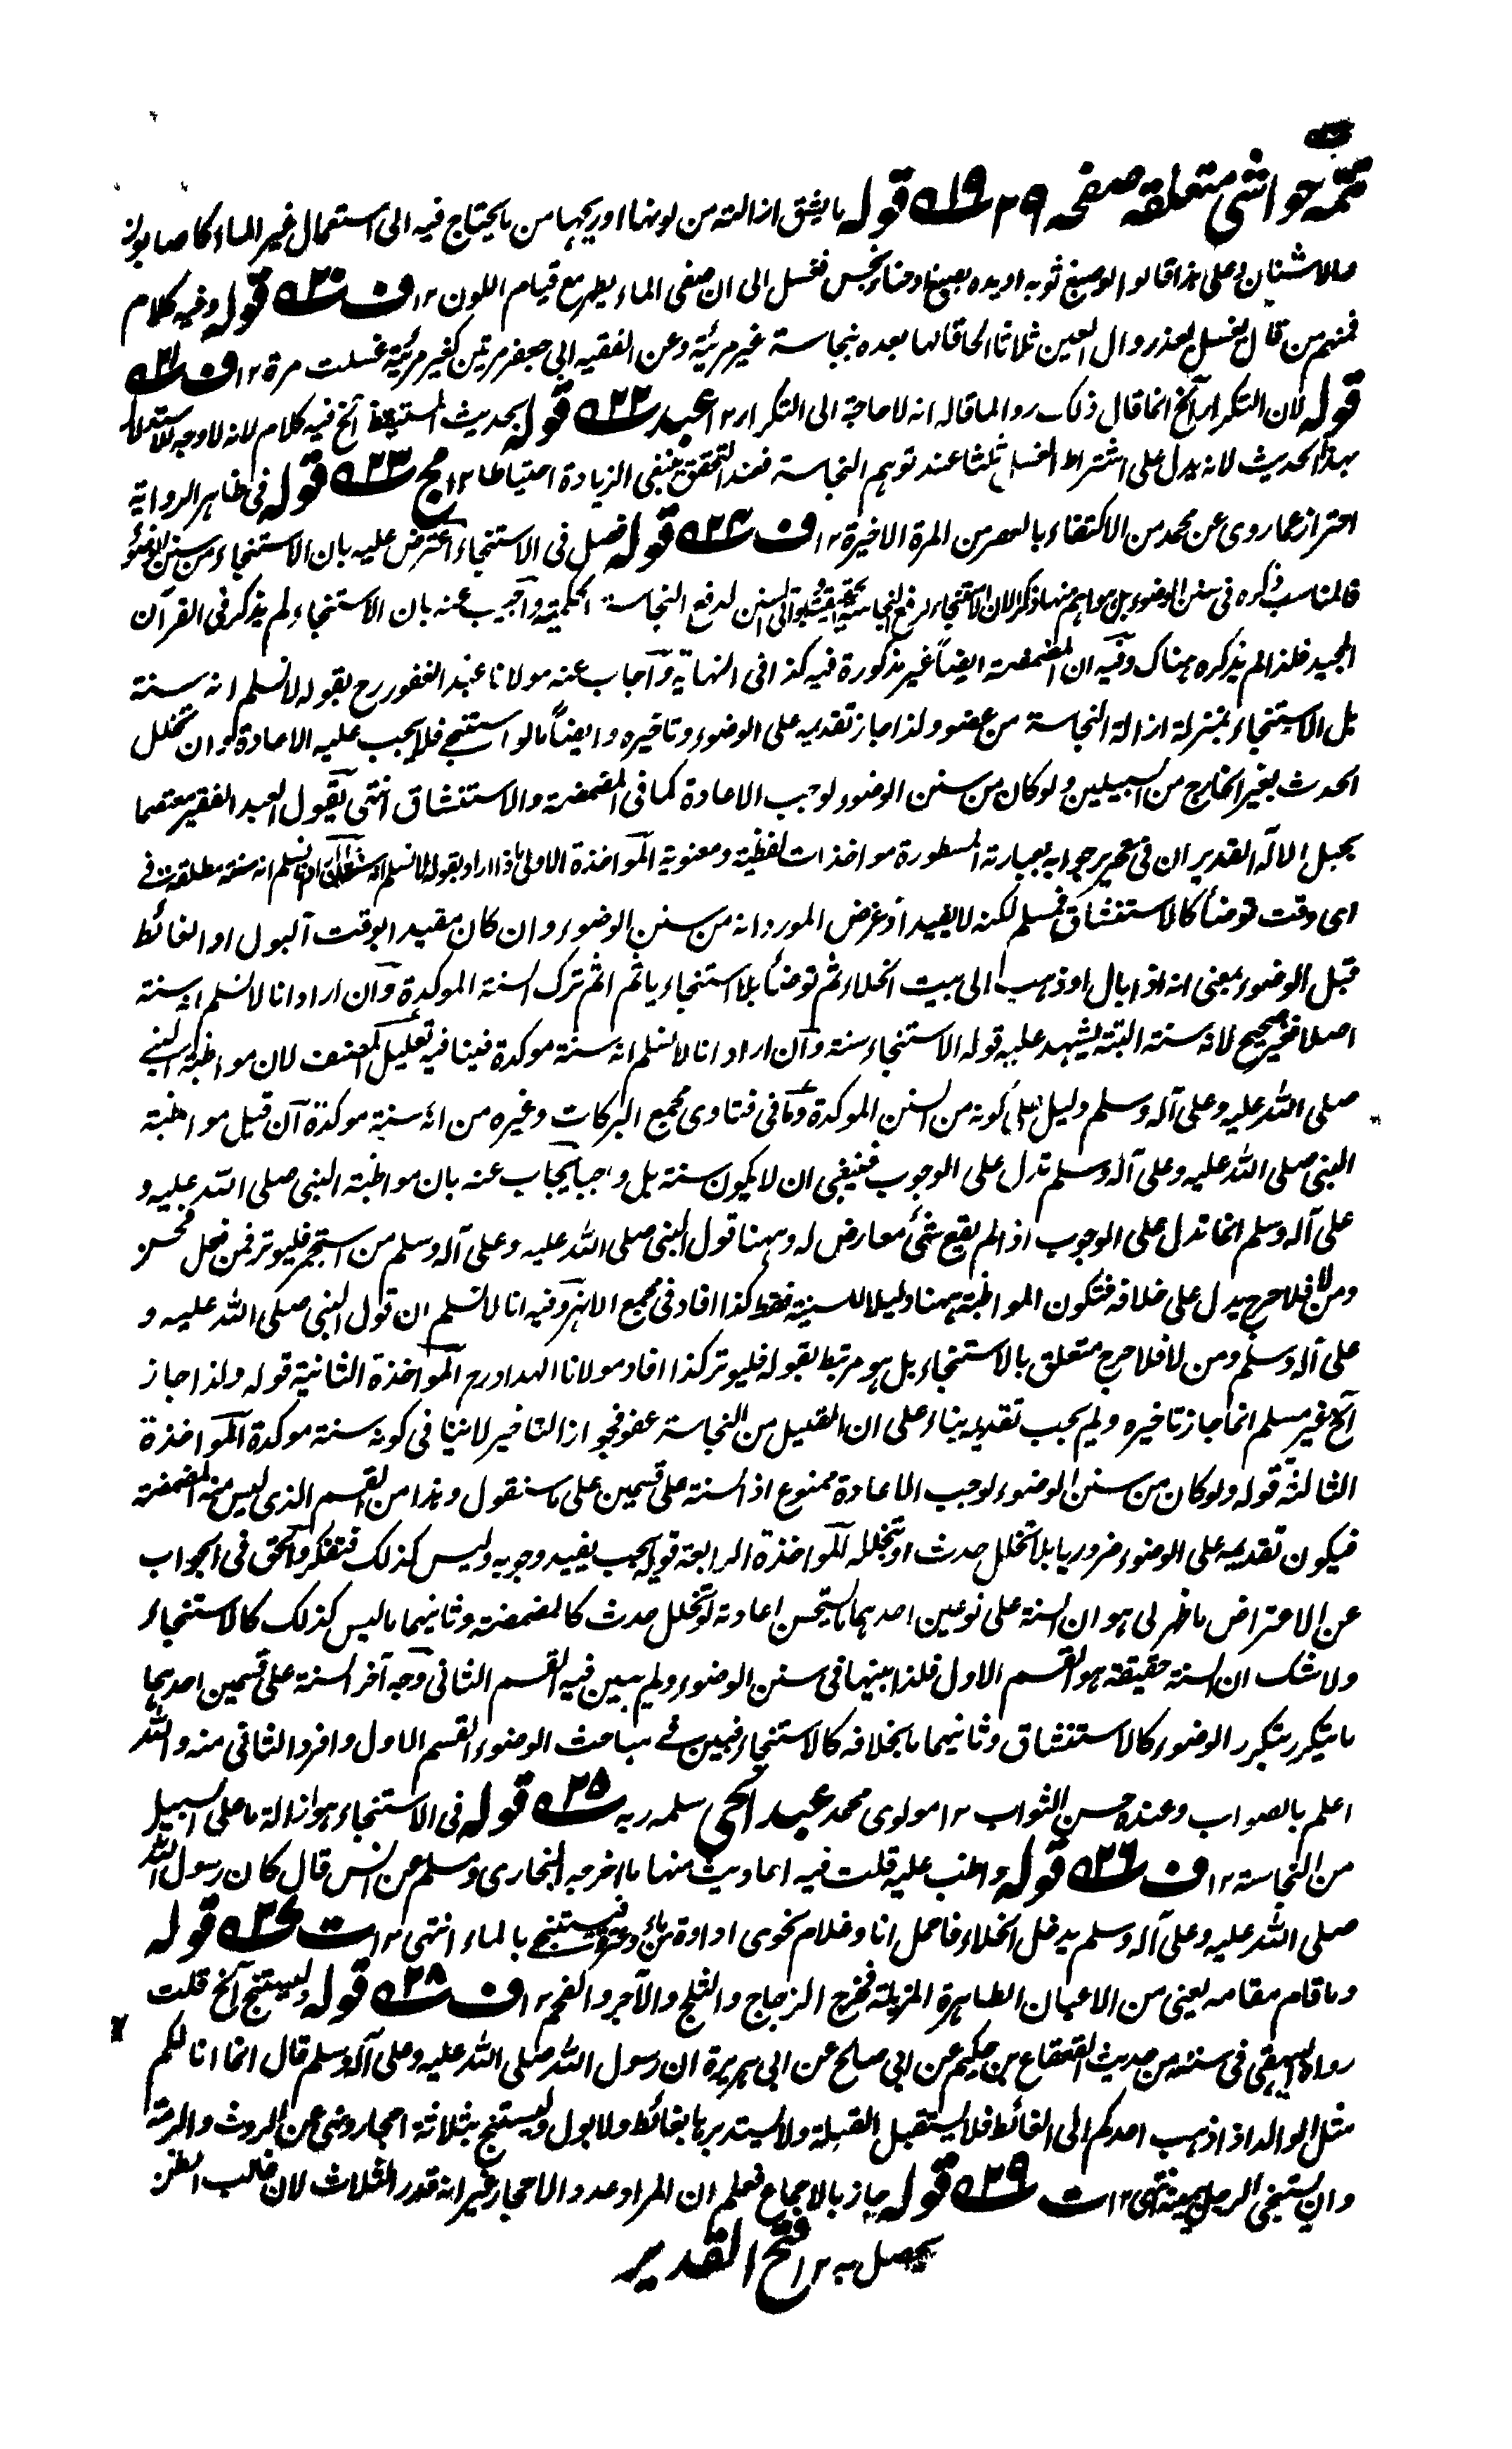 تتمّه حواشي متعلقه صفحه ٢٩ ۱۹ قوله ما يشق ازالته من لونها او ريحها من ما يحتاج فيه الى استعمال غير الماء كالصابون
والاشنان وعلى هذا قالوا لو صبغ ثوبه او يده بصبغ او حناء نجس فغسل الى ان صفى الماء يطهر مع قيام اللون ١٢ ف ۲۰ قوله وفيه كلام
فمنهم من قال يغسل بعد زوال العين ثلاثا الحاقا لها بعده بنجاسة غير مرئية وعن الفقيه ابى جعفر مرتين كغير مرئية غسلت مرة ١٢ ف ۲۱
قوله لان التكرار الخ انما قال ذلك ردا لما قاله انه لا حاجة الى التكرار ١٢ عبد ۲۲ قوله بحديث المستيقظ الخ فيه كلام لانه لا وجه للاستدلال
بهذا الحديث لانه يدل على اشتراط الغسل ثلثا عند توهم النجاسة فعند التحقق ينبغى الزيادة احتياطا ١٢ مج ۲۳ قوله فى ظاهر الرواية
احتراز عما روى عن محمد من الاكتفاء بالعصر من المرة الاخيرة ١٢ ف ۲۴ قوله فصل فى الاستنجاء اعترض عليه بان الاستنجاء من سنن الوضوء
فالمناسب ذكره فى سنن الوضوء بل هو اهم منها ذكرا لان الاستنجاء لرفع النجاسة الحقيقية وباقى السنن لدفع النجاسة الحكمية واجيب عنه بان الاستنجاء لم يذكر فى القرآن
المجيد فلذا لم يذكره هناك وفيه ان المضمضة ايضاً غير مذكورة فيه كذا فى النهاية وآجاب عنه مولانا عبد الغفور رح بقوله لا نسلم انه سنة
بل الاستنجاء بمنزلة ازالة النجاسة من عضو ولذا جاز تقديمه على الوضوء وتاخيره وايضاً ما لو استنجى فلا يجب عليه الاعادة وان تخلل
الحدث بغير الخارج من السبيلين ولو كان من سنن الوضوء لوجب الاعادة كما فى المضمضة والاستنشاق انتهى يقول العبد الفقير معتصما
بحبل الاله القدير ان فى تحرير جوابه بعبارته المسطورة مواخذات لفظية ومعنوية المواخذة الاولى ماذا اراد بقوله لا نسلم انه سنة ان اراد انا لا نسلم انه سنة مطلقة فى
اى وقت توضأ كالاستنشاق فمسلم لكنه لا يفيد اذ غرض المورد انه من سنن الوضوء وان كان مقيدا بوقت البول او الغائط
قبل الوضوء بمعنى انه اذا بال او ذهب الى بيت الخلاء ثم توضأ بلا استنجاء ياثم اثم ترك السنة الموكدة وآن اراد انا لا نسلم انه سنة
اصلا فغير صحيح لانه سنة البتة يشهد عليه قوله الاستنجاء سنة وآن اراد انا لا نسلم انه سنة موكدة فينافيه تعليل المصنف لان مواظبة النبى
صلى الله عليه وعلى آله وسلم دليل على كونه من السنن الموكدة وما فى فتاوى مجمع البركات وغيره من انه سنة موكدة آن قيل مواظبة
النبى صلى الله عليه وعلى آله وسلم تدل على الوجوب فينبغى ان لا يكون سنة بل واجبا يجاب عنه بان مواظبة النبى صلى الله عليه و
على آله وسلم انما تدل على الوجوب اذ الم يقع شئ معارض له وههنا قول النبى صلى الله عليه وعلى آله وسلم من استجمر فليوتر فمن فعل فحسن
ومن لا فلا حرج يدل على خلافه فتكون المواظبة ههنا دليلا للسنية فقط كذا افاد فى مجمع الانهر وفيه انا لا نسلم ان قول النبى صلى الله عليه و
على آله وسلم ومن لا فلا حرج متعلق بالاستنجاء بل هو مرتبط بقوله فليوتر كذا افاد مولانا الهداد رح المواخذة الثانية قوله ولذا جاز
آلخ غير مسلم انما جاز تاخيره ولم يجب تقديمه بناء على ان القليل من النجاسة عفو فجواز التاخير لا ينافى كونه سنة موكدة المواخذة
الثالثة قوله ولو كان من سنن الوضوء لوجب الاعادة ممنوع اذ السنة على قسمين على ما سنقول وهذا من القسم الذى ليس منه المضمضة
فيكون تقديمه على الوضوء ضروريا بلا تخلل حدث او بتخلله المواخذة الرابعة قوله يجب يفيد وجوبه وليس كذلك فتفكر والحق فى الجواب
عن الاعتراض ما ظهر لى هو ان السنة على نوعين احدهما ما يستحسن اعادته لو تخلل حدث كالمضمضة وثانيهما ما ليس كذلك كالاستنجاء
ولا شك ان السنة حقيقة هو القسم الاول فلذا بينها فى سنن الوضوء ولم يبين فيه القسم الثانى وجه آخر السنة على قسمين احدهما
ما يتكرر بتكرر الوضوء كالاستنشاق وثانيهما ما بخلافه كالاستنجاء فبين فى مباحث الوضوء القسم الاول وافرد الثانى منه والله
اعلم بالصواب وعنده حسن الثواب ١٢ مولوى محمد عبد الحى سلمه ربه ۲۵ قوله فى الاستنجاء هو ازالة ما على السبيل
من النجاسة ١٢ ف ۲۶ قوله واظب عليه قلت فيه احاديث منها ما اخرجه البخارى ومسلم عن انس قال كان رسول الله
صلى الله عليه وعلى آله وسلم يدخل الخلاء فاحمل انا وغلام نحوى اداوة من ماء وعنزة فيستنجى بالماء انتهى ١٢ ت ۲۷ قوله
وما قام مقامه يعنى من الاعيان الطاهرة المزيلة فخرج الزجاج والثلج والآجر والفحم ١٢ ف ۲۸ قوله وليستنج آلخ قلت
رواه البيهقى فى سننه من حديث القعقاع بن حكيم عن ابى صلح عن ابى هريرة ان رسول الله صلى الله عليه وعلى آله وسلم قال انما انا لكم
مثل الوالد اذا ذهب احدكم الى الغائط فلا يستقبل القبلة ولا يستدبرها بغائط ولا بول وليستنج بثلاثة احجار ونهى عن الروث والرمة
وان يستنجى الرجل بيمينه انتهى ١٢ ت ۲۹ قوله جاز بالاجماع فعلم ان المراد عدد الاحجار غير انه قدر بالثلاث لان غالب الظن
يحصل به ١٢ فتح القدير